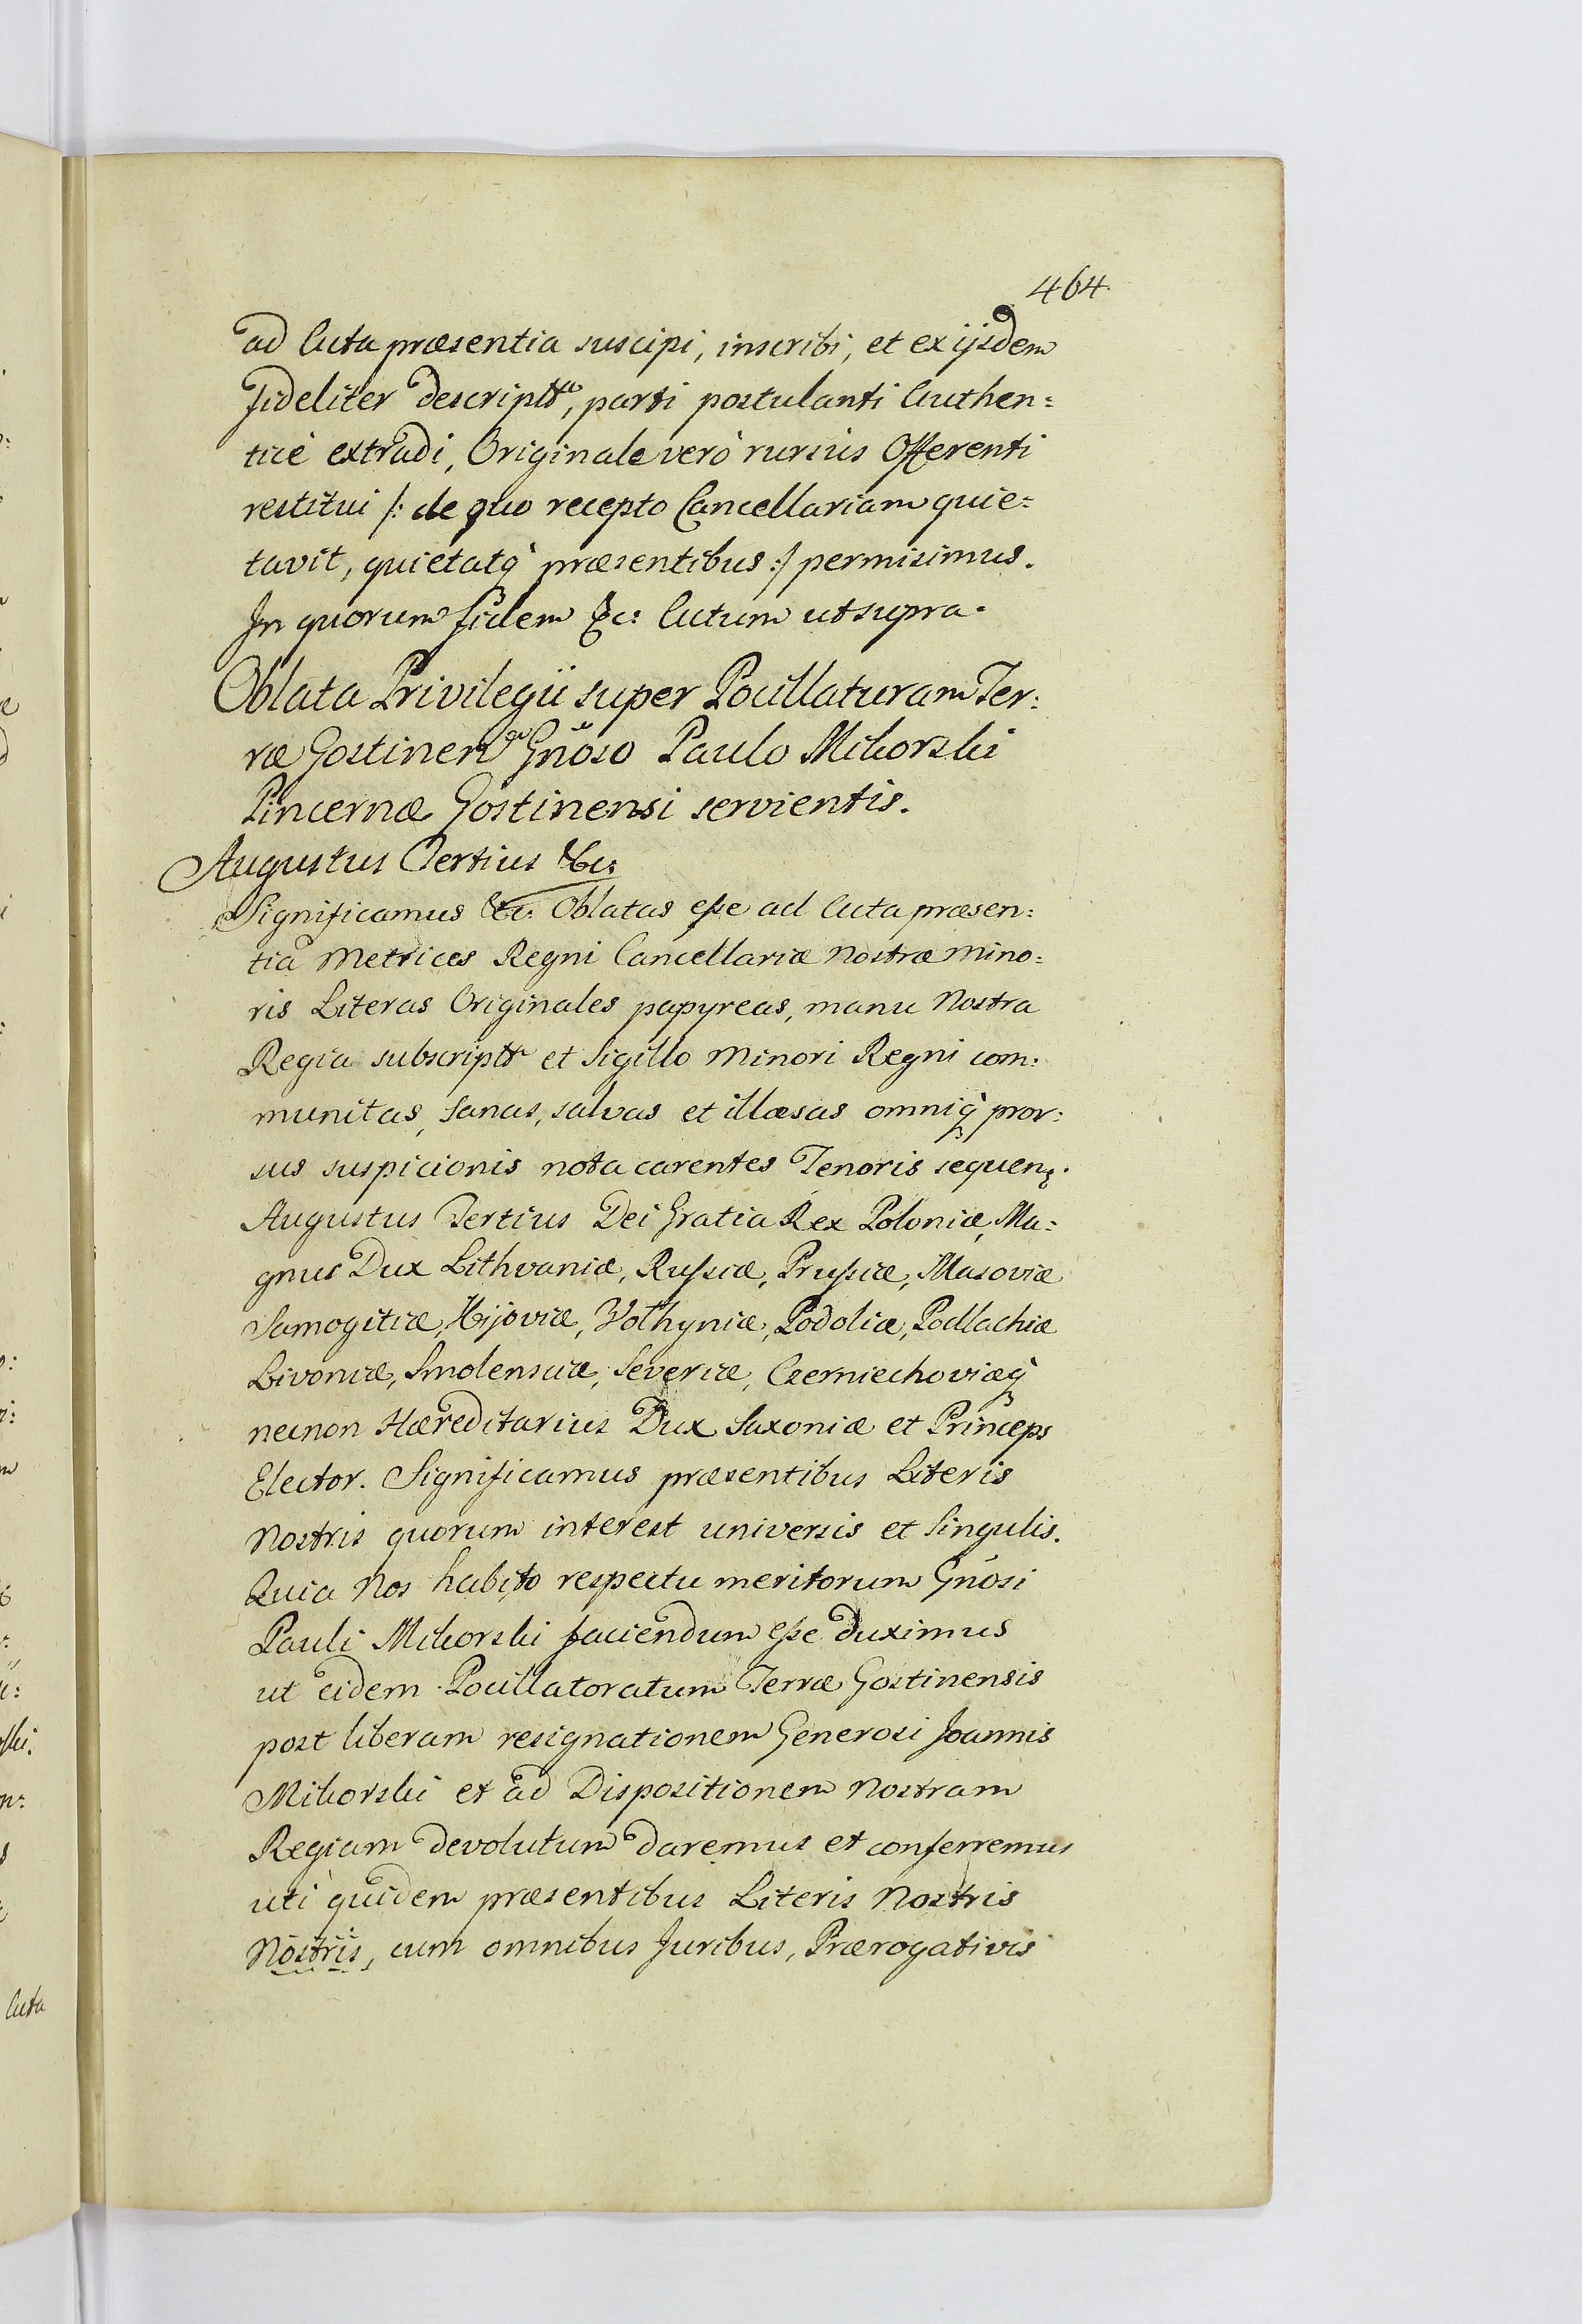 464.
ad Acta præsentia suscipi, inscribi, et ex ijsdem
Fideliter descriptt, parti postulanti Authen=
ticè extradi, Originale verò rursus Offerenti
restitui /: de quo recepto Cancellariam quie=
tavit, quietatq̀ præsentibus :/ permisimus.
In quorum fidem &c: Actum ut supra.
Oblata Privilegii super Pocillaturam Ter:
ræ Gostinen Gñoso Paulo Mikorski
Pincernæ Gostinensi servientis.
Augustus Tertius &c:
Significamus &c: Oblatas esse ad Acta præsen:
tia Metrices Regni Cancellariæ Nostræ Mino:
ris Literas Originales papyreas, manu Nostra
Regia subscriptt et Sigillo Minori Regni com:
munitas, Sanas, salvas et illæsas omniq̀ pror:
sus suspicionis nota carentes Tenoris sequen.
Augustus Tertius Dei Gratia Rex Poloniæ, Ma:
gnus Dux Lithvaniæ, Russiæ, Prussiæ, Masoviæ
Samogitiæ, Kijoviæ, Volhyniæ, Podoliæ, Podlachiæ
Livoniæ, Smolensciæ, Severiæ, Czerniechoviæq̀
necnon Hæreditarius Dux Saxoniæ et Princeps
Elector. Significamus præsentibus Literis
Nostris quorum interest universis et Singulis.
Quia Nos habito respectu meritorum Gnosi
Pauli Mikorski faciendum esse duximus
ut eidem Pocillatoratum Terræ Gostinensis
post liberam resignationem Generosi Joannis
Mikorski et ad Dispositionem Nostram
Regiam devolutum daremus et conferremus
uti quidem præsentibus Literis Nostris
Nostris, cum omnibus Juribus, Prærogativis
Acta